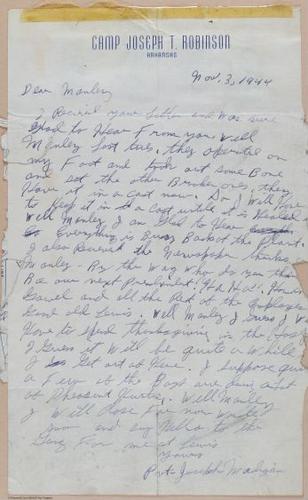 CAMP JOSEPH T. ROBINSON
ARKANSAS
Nov. 3, 1944
Dear Manley
I Received your letter and was sure
glad to Hear From you. Well
Manley last tues, they operated on
my Foot and took out some Bone
and set the other Broken ones, they
Have it in a cast now. I Will Have
to Keep it in a cast until it is Healed
Well Manley I am Glad to Hear
Everything is Busy Back at the Plant.
I also Received the Newspaper thanks
Manley. By the Way Who do you think
Be our next President. Ha Ha.
and all the Rest of the employees
Good old Lewis. Well Manley I guess I W
Have to spend thanksgiving in the
I Guess it Will be quite a While
I Get out of Here. I suppose quite
a Few of the Boys are going out
Pheasant Hunting. Well Manley
I Will Close For now
and say Hello to the
Gang For me at Lewis
Yours
Pvt. Joseph